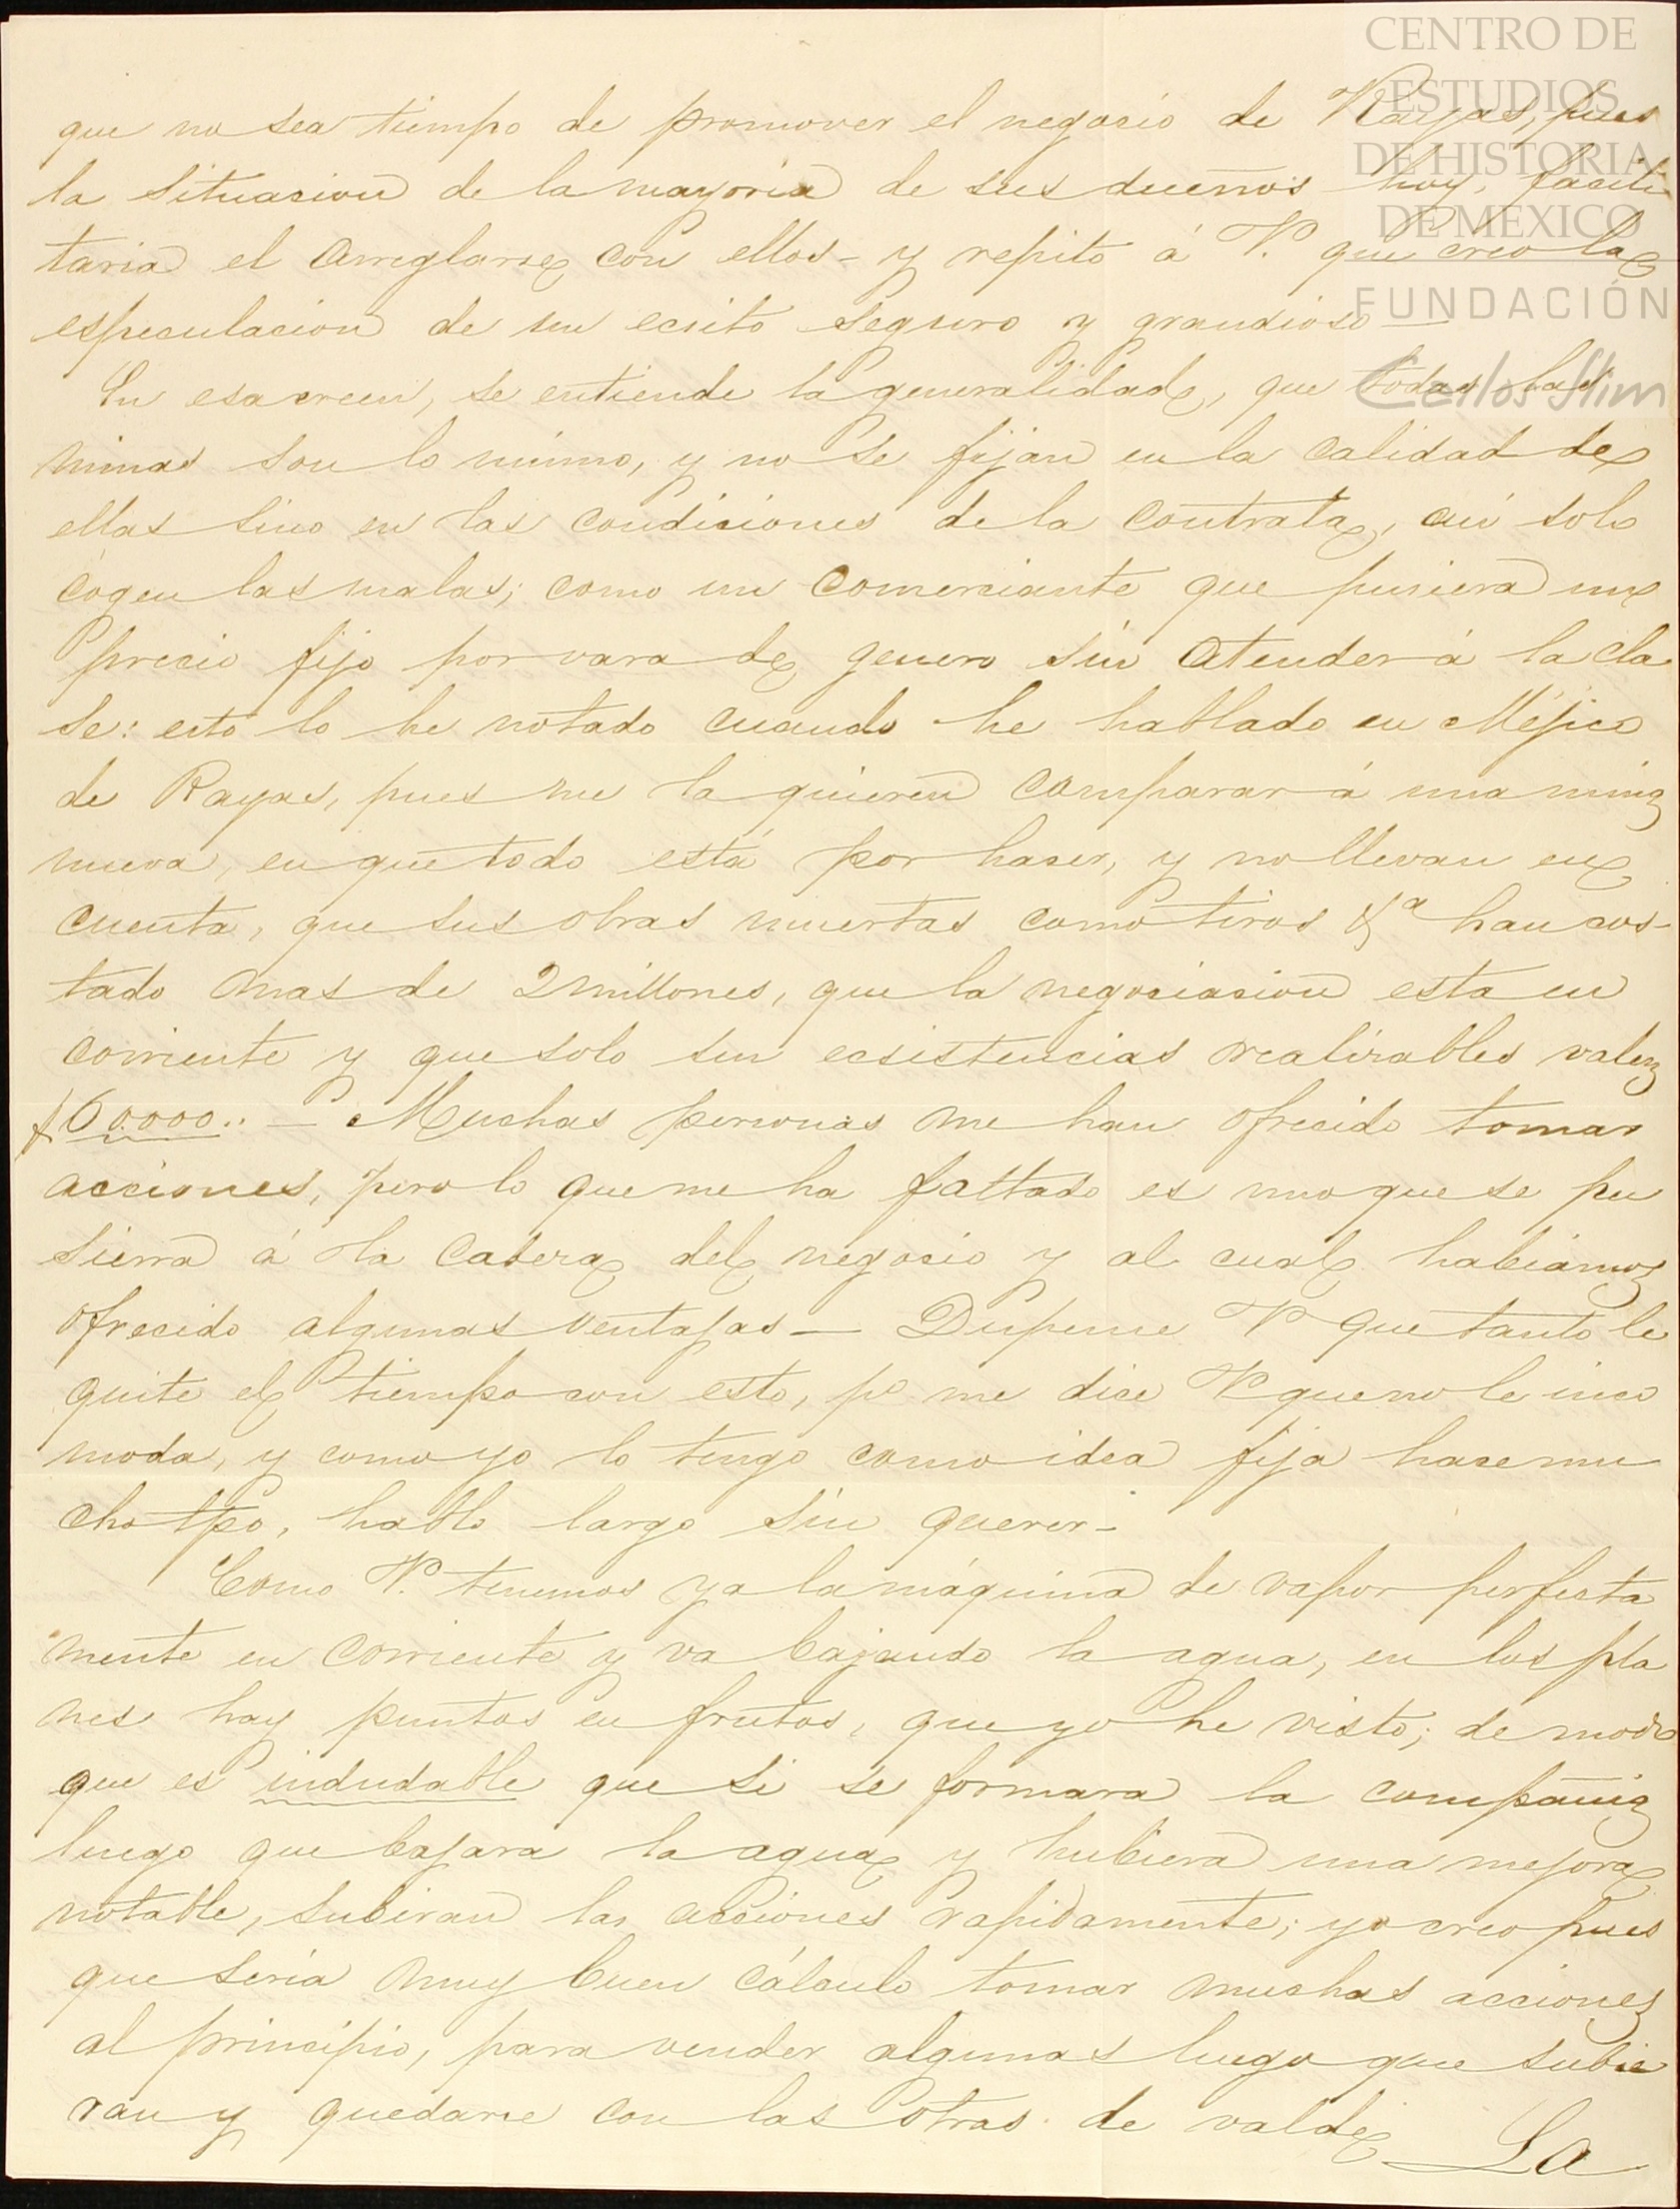 CENTRO DE
ESTUDIOS
DE HISTORIA
DE MEXICO
FUNDACIÓN
Carlos Slim
que no sea tiempo de promover el negosio de Rayas, pues
la situasion de la mayoria de sus dueños hoy, facili
taria el arreglarse con ellos - y repito á V. que creo la
especulacion de un ecsito seguro y grandioso —
En esa creen, se entiende la generalidad, que todas las
minas son lo mismo, y no se fijan en la calidad de
ellas sino en las condiciones de la contrata, asi solo
cogen las malas; como un comerciante que pusiera un
precio fijo por vara de genero sin atender á la cla
se: esto lo he notado cuando he hablado en Méjico
de Rayas, pues me la quieren comparar á una mina
nueva, en que todo está por haser, y no llevan en
cuenta, que sus obras muertas como tiros &a han cos-
tado mas de 2 millones, que la negosiasion esta en
corriente y que solo sus ecsistencias realisables valen
$60.000.. — Muchas personas me han ofresido tomar
acciones, pero lo que me ha faltado es uno que se pu
siera á la cabesa del negosio y al cual habiamos
ofresido algunas ventajas — Dispense V que tanto le
quite el tiempo con esto, po me dise V que no le inco
moda, y como yo lo tengo como idea fija hase mu
cho tpo, hablo largo sin querer -
Como V. tenemos ya la máquina de vapor perfecta
mente en corriente y va bajando la agua, en los pla
nes hay puntos en frutos, que yo he visto; de modo
que es indudable que si se formara la compañia
luego que bajara la agua y hubiera una mejora
notable, subiran las acciones rapidamente; yo creo pues
que seria muy buen cálculo tomar muchas acciones
al principio, para vender algunas luego que subie
ran y quedarse con las otras de valde — La